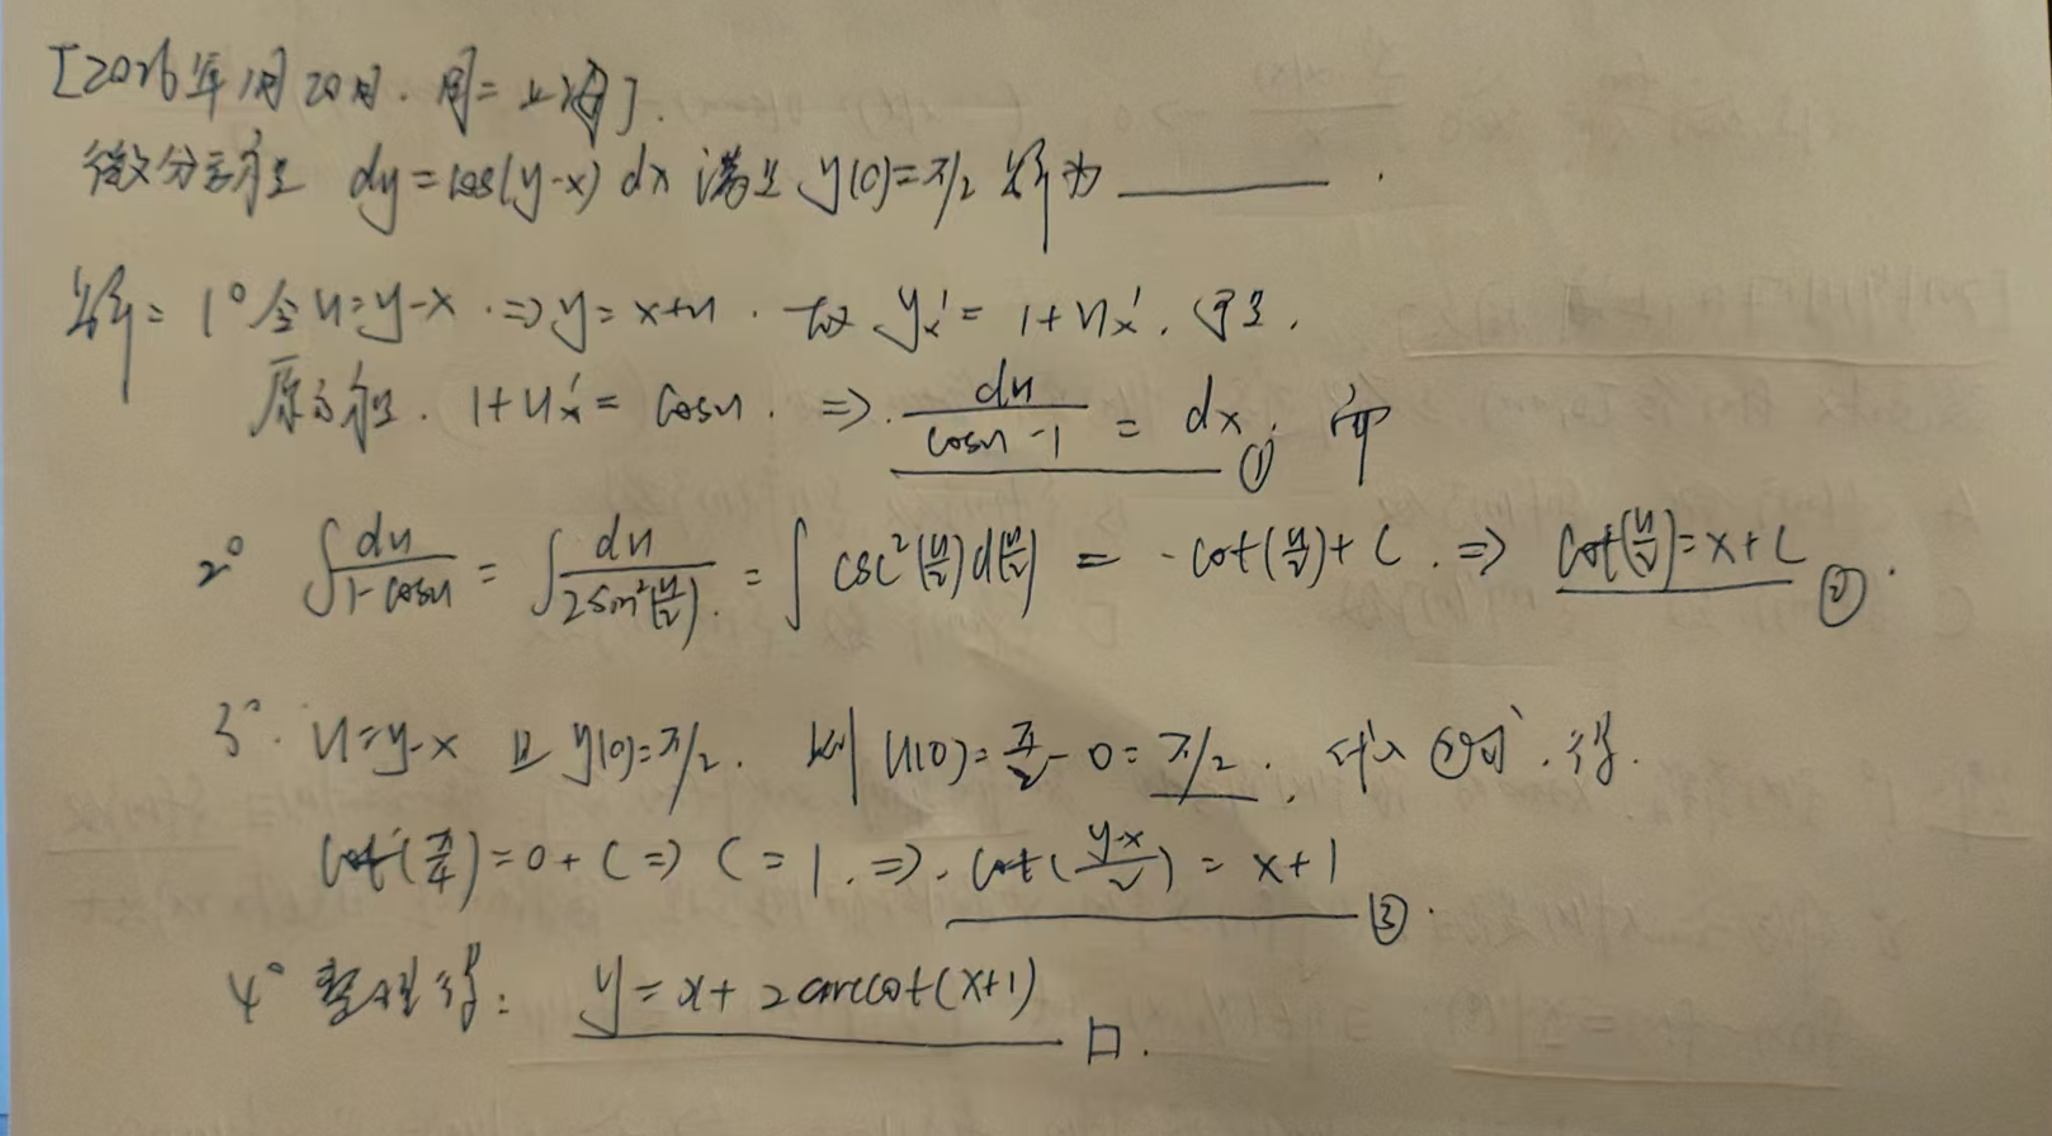 [2026年1月20日. 周二 上海].
微分方程 dy=cos(y-x) dx 满足 y(0)=π/2 解为 ______ .
解: 1° 令 u=y-x . ⇒ y= x+u . 故 yₓ'= 1+uₓ'. 可至.
原方程. 1+uₓ'= cosu . ⇒. du/(cosu -1) = dx ①. 即
2° ∫du/(1-cosu) = ∫du/(2sin²(u/2)). = ∫csc²(u/2)d(u/2) = -cot(u/2)+C . ⇒ cot(u/2)=x+C ②.
3°. u=y-x 且 y(0)=π/2. 则 u(0)=π/2-0=π/2 . 代入②可. 得.
cot(π/4)=0+C ⇒ C=1. ⇒. cot((y-x)/2) = x+1 ③.
4° 整理得: y=x+2arccot(x+1) 口.